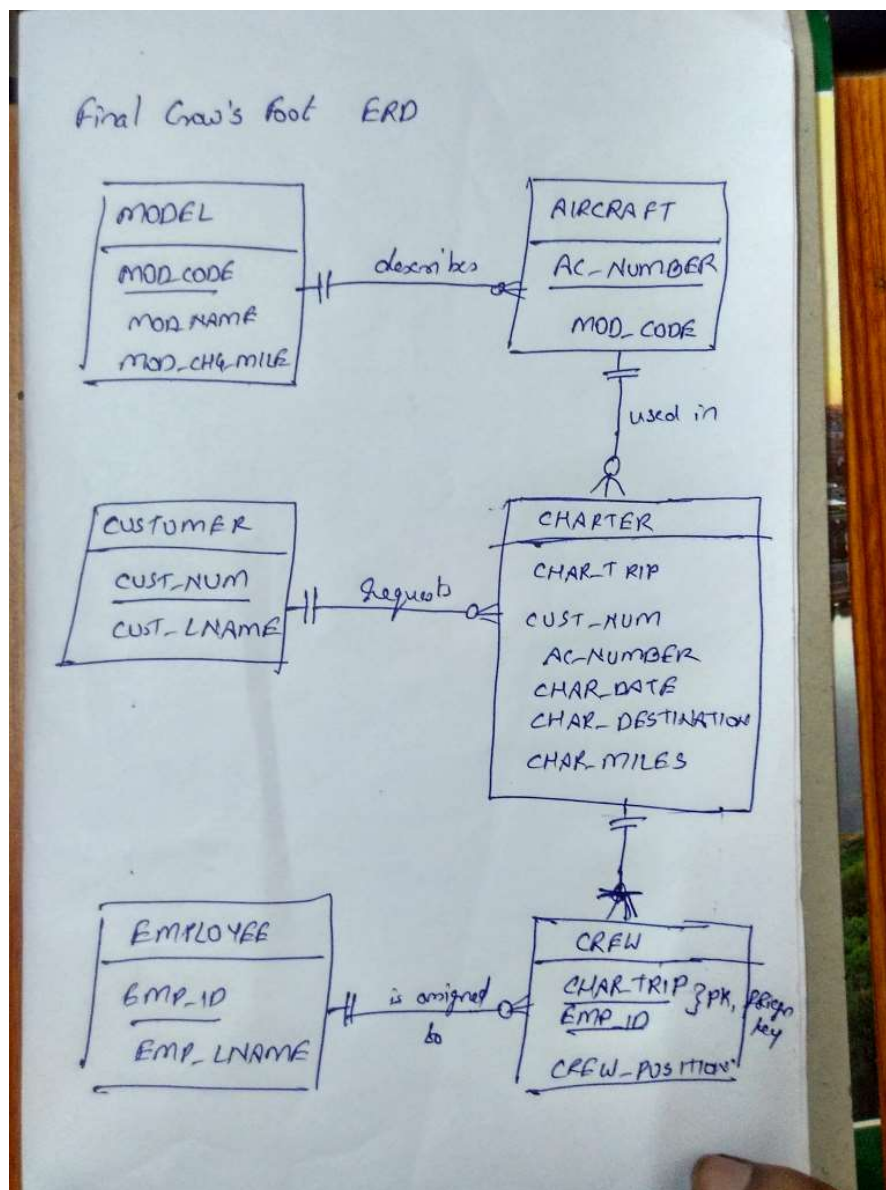 Final Crow's Foot ERD
MODEL
MOD_CODE
MOD_NAME
MOD_CHG_MILE
describes
AIRCRAFT
AC_NUMBER
MOD_CODE
used in
CUSTUMER
CUST_NUM
CUST_LNAME
requests
CHARTER
CHAR_TRIP
CUST_NUM
AC_NUMBER
CHAR_DATE
CHAR_DESTINATION
CHAR_MILES
EMPLOYEE
EMP_ID
EMP_LNAME
is assigned
to
CREW
CHAR_TRIP
EMP_ID
} PK,
key
CREW_POSITION